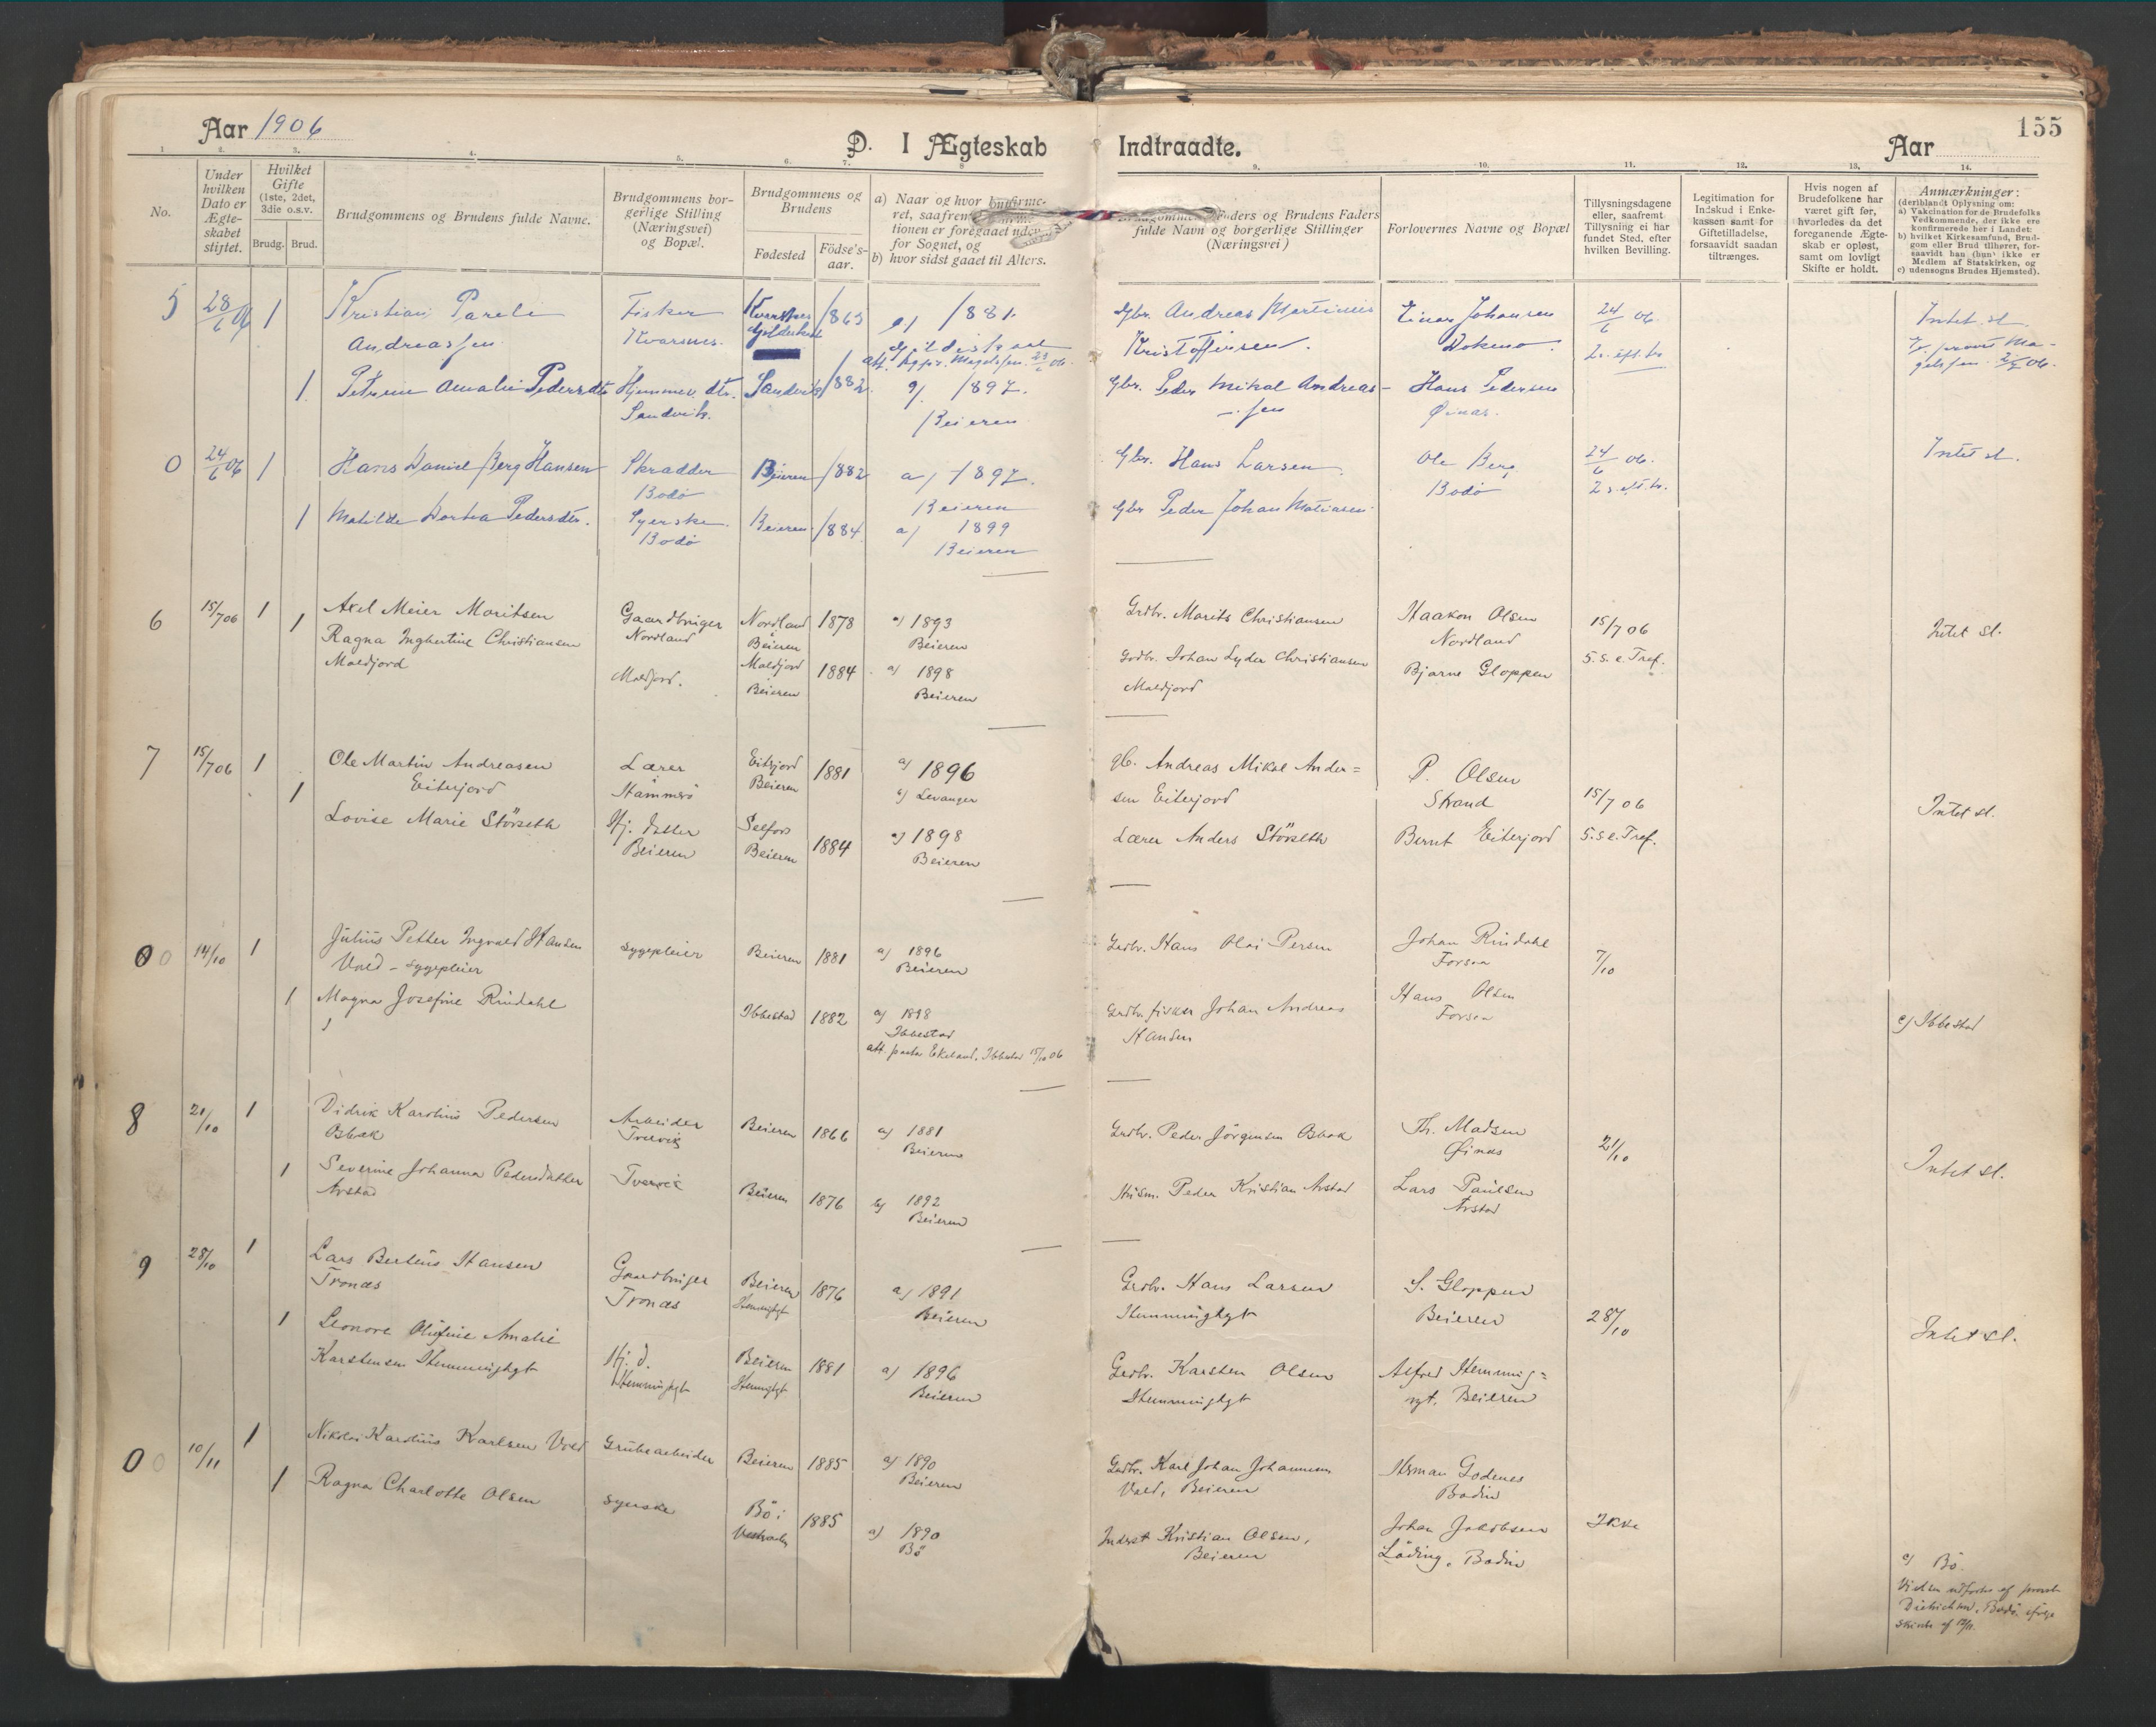 Aar 1906
D. I Ægteskab Indtraadte.
Aar
155
1. 2. 3. 4. 5. 6. 7. 8 9. 10. 11. 12. 13. 14.
No.
Under hvilken Dato er Ægte-skabet stiftet.
Hvilket Gifte (1ste, 2det, 3die o.s.v.
Brudg. Brud.
Brudgommens og Brudens fulde Navne.
Brudgommens bor-gerlige Stilling (Næringsvei) og Bopæl.
Brudgommens og Brudens
Fødested
Födse's-aar.
a) Naar og hvor
ret, saafrem
tionen er foregaaet uden
for Sognet, og
b) hvor sidst gaaet til Alters.
ders og Brudens Faders
fulde Navn og borgerlige Stillinger
(Næringsvei)
Forlovernes Navne og Bopæl
Tillysningsdagene
eller, saafremt
Tillysning ei har
fundet Sted, efter
hvilken Bevilling.
Legitimation for
Indskud i Enke-
kassen samt for
Giftetilladelse,
forsaavidt saadan
tiltrænges.
Hvis nogen af
Brudefolkene har
været gift før,
hvorledes da det
foregaaende Ægte-
skab er opløst,
samt om lovligt
Skifte er holdt.
Anmærkninger:
(deriblandt Oplysning om:
a) Vakcination for de Brudefolks
Vedkommende, der ikke ere
konfirmerede her i Landet:
b) hvilket Kirkesamfund, Brud-
gom eller Brud tilhører, for-
saavidt han (hun) ikke er
Medlem af Statskirken, og
c) udensogns Brudes Hjemsted).
5 28/6 06 1 Kristian Pareli Fisker 1863 a) 1881. Gbr. Andreas Martinus Einar Johansen 24/6 06. Intet sl.
Andreassen Kvarsnes. Gildeskaal Kristoffersen.
1 Petrine Amalie Pedersdtr Hjemmev. dtr. Sandvik 1882. a) 1897. Gbr. Peder Mikal Andreas- Hans Pedersen
Sandvik. Beieren sen Øinæs.
0 24/6 06 1 Hans Daniel Berg Hansen Skrædder Beieren 1882 a) 1897. Gbr. Hans Larsen Ole Berg 24/6 06. Intet sl.
Bodö Beieren Bodö
1 Matilde Dortea Pedersdtr. Syerske Beieren 1884 a) 1899 Gbr Peder Johan Matiasen
Bodö Beieren
6 15/7 06 1 Axel Meier Moritsen Gaardbruger Nordland 1878 a) 1893 Grdbr. Morits Christiansen Haakon Olsen 15/7 06 Intet sl.
1 Ragna Ingbertine Christiansen Nordland Beieren Beieren Nordland
Moldjord Moldjord. Moldjord 1884 a) 1898 Grdbr. Johan Lyder Christiansen Bjarne Gloppen 5. S. e. Tref.
Beieren Beieren Moldjord
7 15/7 06 1 Ole Martin Andreasen Lærer Eiterjord 1881 a) 1896 Gb. Andreas Mikal Ander= P. Olsen 15/7 06 Intet sl.
1 Eiterjord Hammerö Beieren Levanger sen Eiterjord Strand
Lovise Marie Störseth Hj. datter Selfors 1884 a) 1898 Lærer Anders Störseth Bernt Eiterjord 5. S. e. Tref.
Beieren Beieren Beieren
0 14/10 1 Julius Petter Ingvald Hansen sygepleier Beieren 1881 a) 1896 Grdbr. Hans Olai Persen Johan Rindahl 7/10
Vold - sygepleier Beieren Forsaa
1 Magna Josefine Rindahl Ibbestad 1882 a) 1898 Grdbr. fisker Johan Andreas Hans Olsen c) Ibbestad
Ibbestad Hansen Forsaa
att. pastor Ekeland, Ibbestad 15/10 06
8 21/10 1 Didrik Karolius Pedersen Arbeider Beieren 1866 a) 1881 Grdbr. Peder Jörgensen Osbak Th. Madsen 21/10 Intet sl.
Osbak Tvervik Beieren Øinæs
1 Severine Johanna Pedersdatter Tvervik Beieren 1876 b) 1892 Husm. Peder Kristian Arstad Lars Paulsen
Arstad Beieren Arstad
9 28/10 1 Lars Berteus Hansen Gaardbruger Beieren 1876 a) 1891 Grdbr. Hans Larsen S. Gloppen 28/10 Intet sl.
Tronæs Tronæs Beieren Beieren
1 Leonore Olufine Amalie Hj. d. Beieren 1881 a) 1896 Grdbr. Karsten Olsen Alfred Hemming=
Karstensen Beieren nyt. Beieren
0 10/11 1 Nikolai Karolius Karlsen Vold Grubearbeider Beieren 1885 a) 1890 Grdbr. Karl Johan Johannesen Herman Godenes
Beieren Vold, Beieren Bodin
1 Ragna Charlotte Olsen syerske Bö i 1885 a) 1890 Inderst Kristian Olsen, Johan Jakobsen Ikke
Bö Beieren Löding, Bodin c) Bö.
Vielsen udførtes af provst